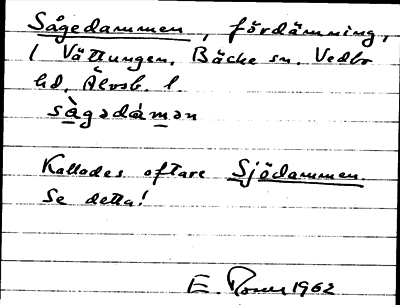 Sågedammen, fördämning,
i Vättungen, Bäcke sn. Vedbo
hd, Älvsb. l.
sàgədámən
Kallades oftare Sjödammen.
Se detta!
E. 1962